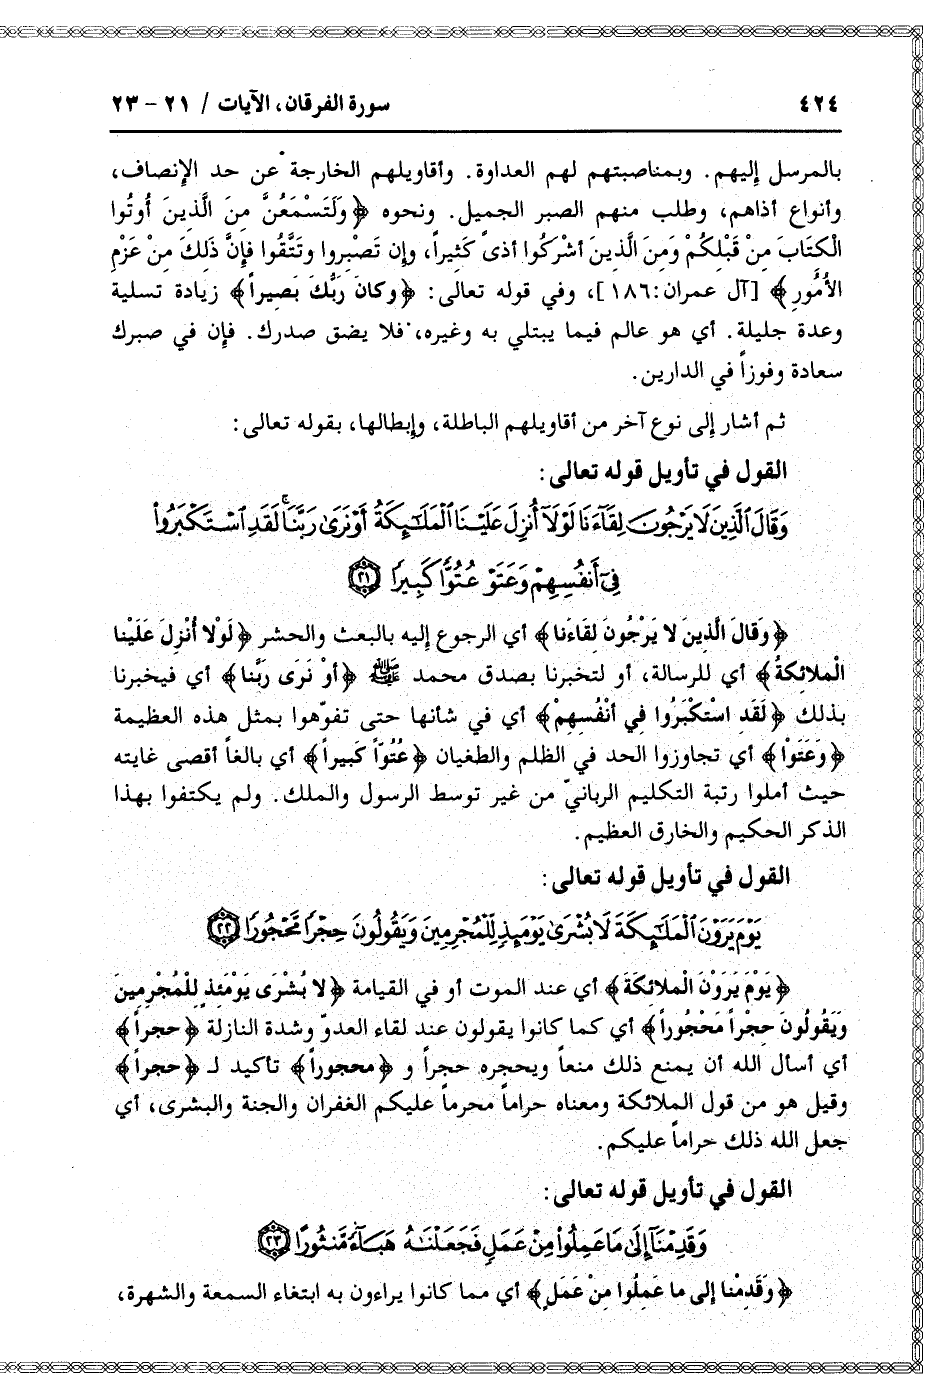 ٤٢٤
سورة الفرقان، الآيات / ٢١ - ٢٣
بالمرسل إليهم. وبمناصبتهم لهم العداوة. وأقاويلهم الخارجة عن حد الإنصاف،
وأنواع أذاهم، وطلب منهم الصبر الجميل. ونحوه ﴿وَلَتَسْمَعُنَّ مِنَ الَّذِينَ أُوتُوا
الْكِتَابَ مِنْ قَبْلِكُمْ وَمِنَ الَّذِينَ أَشْرَكُوا أذىً كَثِيراً، وإن تَصْبِروا وتَتَّقُوا فإنَّ ذَلِكَ مِنْ عَزْمِ
الأُمُورِ﴾ [آل عمران:١٨٦]، وفي قوله تعالى: ﴿وكانَ رَبُّكَ بَصيراً﴾ زيادة تسلية
وعدة جليلة. أي هو عالم فيما يبتلي به وغيره، فلا يضق صدرك. فإن في صبرك
سعادة وفوزاً في الدارين.
ثم أشار إلى نوع آخر من أقاويلهم الباطلة، وإبطالها، بقوله تعالى:
القول في تأويل قوله تعالى:
وَقَالَ ٱلَّذِينَ لَا يَرْجُونَ لِقَآءَنَا لَوْلَآ أُنزِلَ عَلَيْنَا ٱلْمَلَٰٓئِكَةُ أَوْ نَرَىٰ رَبَّنَا ۗ لَقَدِ ٱسْتَكْبَرُوا۟
فِىٓ أَنفُسِهِمْ وَعَتَوْ عُتُوًّا كَبِيرًا ٢١
﴿وَقالَ الَّذِينَ لا يَرْجُونَ لِقاءَنا﴾ أي الرجوع إليه بالبعث والحشر ﴿لَوْلا أُنْزِلَ عَلَيْنا
الْملائِكةُ﴾ أي للرسالة، أو لتخبرنا بصدق محمد ﷺ ﴿أوْ نَرَى رَبَّنا﴾ أي فيخبرنا
بذلك ﴿لَقَدِ اسْتكْبَرُوا في أنْفُسِهِمْ﴾ أي في شأنها حتى تفوّهوا بمثل هذه العظيمة
﴿وَعَتَوْا﴾ أي تجاوزوا الحد في الظلم والطغيان ﴿عُتُوّاً كَبيراً﴾ أي بالغاً أقصى غايته
حيث أملوا رتبة التكليم الربانيّ من غير توسط الرسول والملك. ولم يكتفوا بهذا
الذكر الحكيم والخارق العظيم.
القول في تأويل قوله تعالى:
يَوْمَ يَرَوْنَ ٱلْمَلَٰٓئِكَةَ لَا بُشْرَىٰ يَوْمَئِذٍ لِّلْمُجْرِمِينَ وَيَقُولُونَ حِجْرًا مَّحْجُورًا ٢٢
﴿يَوْمَ يَرَوْنَ الْملائكَةَ﴾ أي عند الموت أو في القيامة ﴿لا بُشْرَى يَوْمَئذٍ للْمُجْرِمينَ
وَيَقُولُونَ حِجْراً مَحْجُوراً﴾ أي كما كانوا يقولون عند لقاء العدوّ وشدة النازلة ﴿حجراً﴾
أي أسأل الله أن يمنع ذلك منعاً ويحجره حجراً و ﴿محجوراً﴾ تأكيد لـ ﴿حجراً﴾
وقيل هو من قول الملائكة ومعناه حراماً محرماً عليكم الغفران والجنة والبشرى، أي
جعل الله ذلك حراماً عليكم.
القول في تأويل قوله تعالى:
وَقَدِمْنَآ إِلَىٰ مَا عَمِلُوا۟ مِنْ عَمَلٍ فَجَعَلْنَٰهُ هَبَآءً مَّنثُورًا ٢٣
﴿وَقَدِمْنا إلى ما عَمِلُوا مِنْ عَمَلٍ﴾ أي مما كانوا يراءون به ابتغاء السمعة والشهرة،